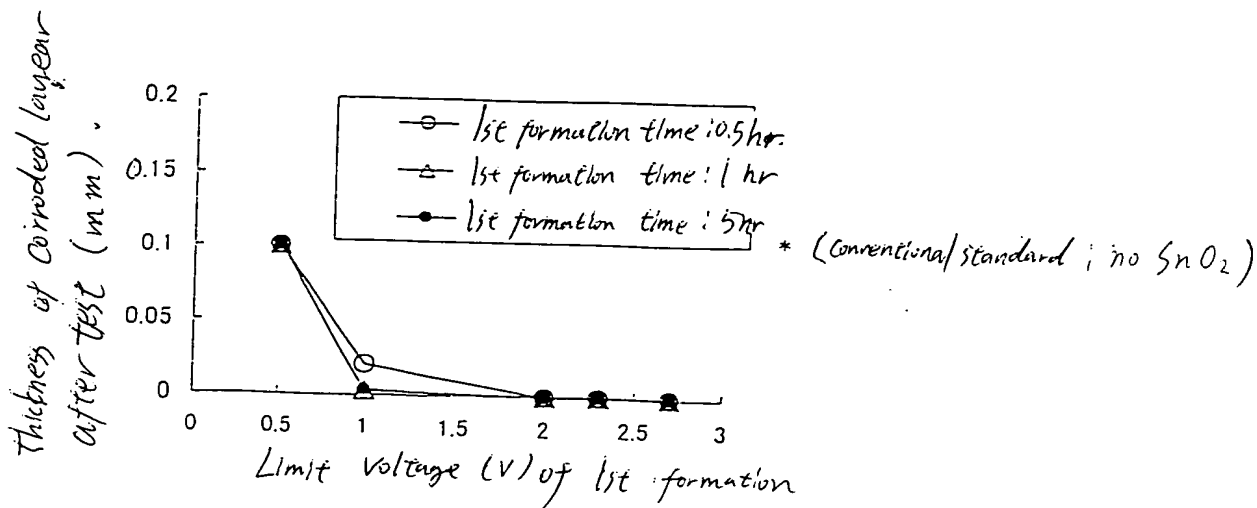 Thickness of Corroded layear
after test (mm).
0.2
0.15
0.1
0.05
0
1st formation time : 0.5 hr.
1st formation time : 1 hr
1st formation time : 5 hr
* (Conventional standard ; no SnO2)
0 0.5 1 1.5 2 2.5 3
Limit voltage (V) of 1st formation